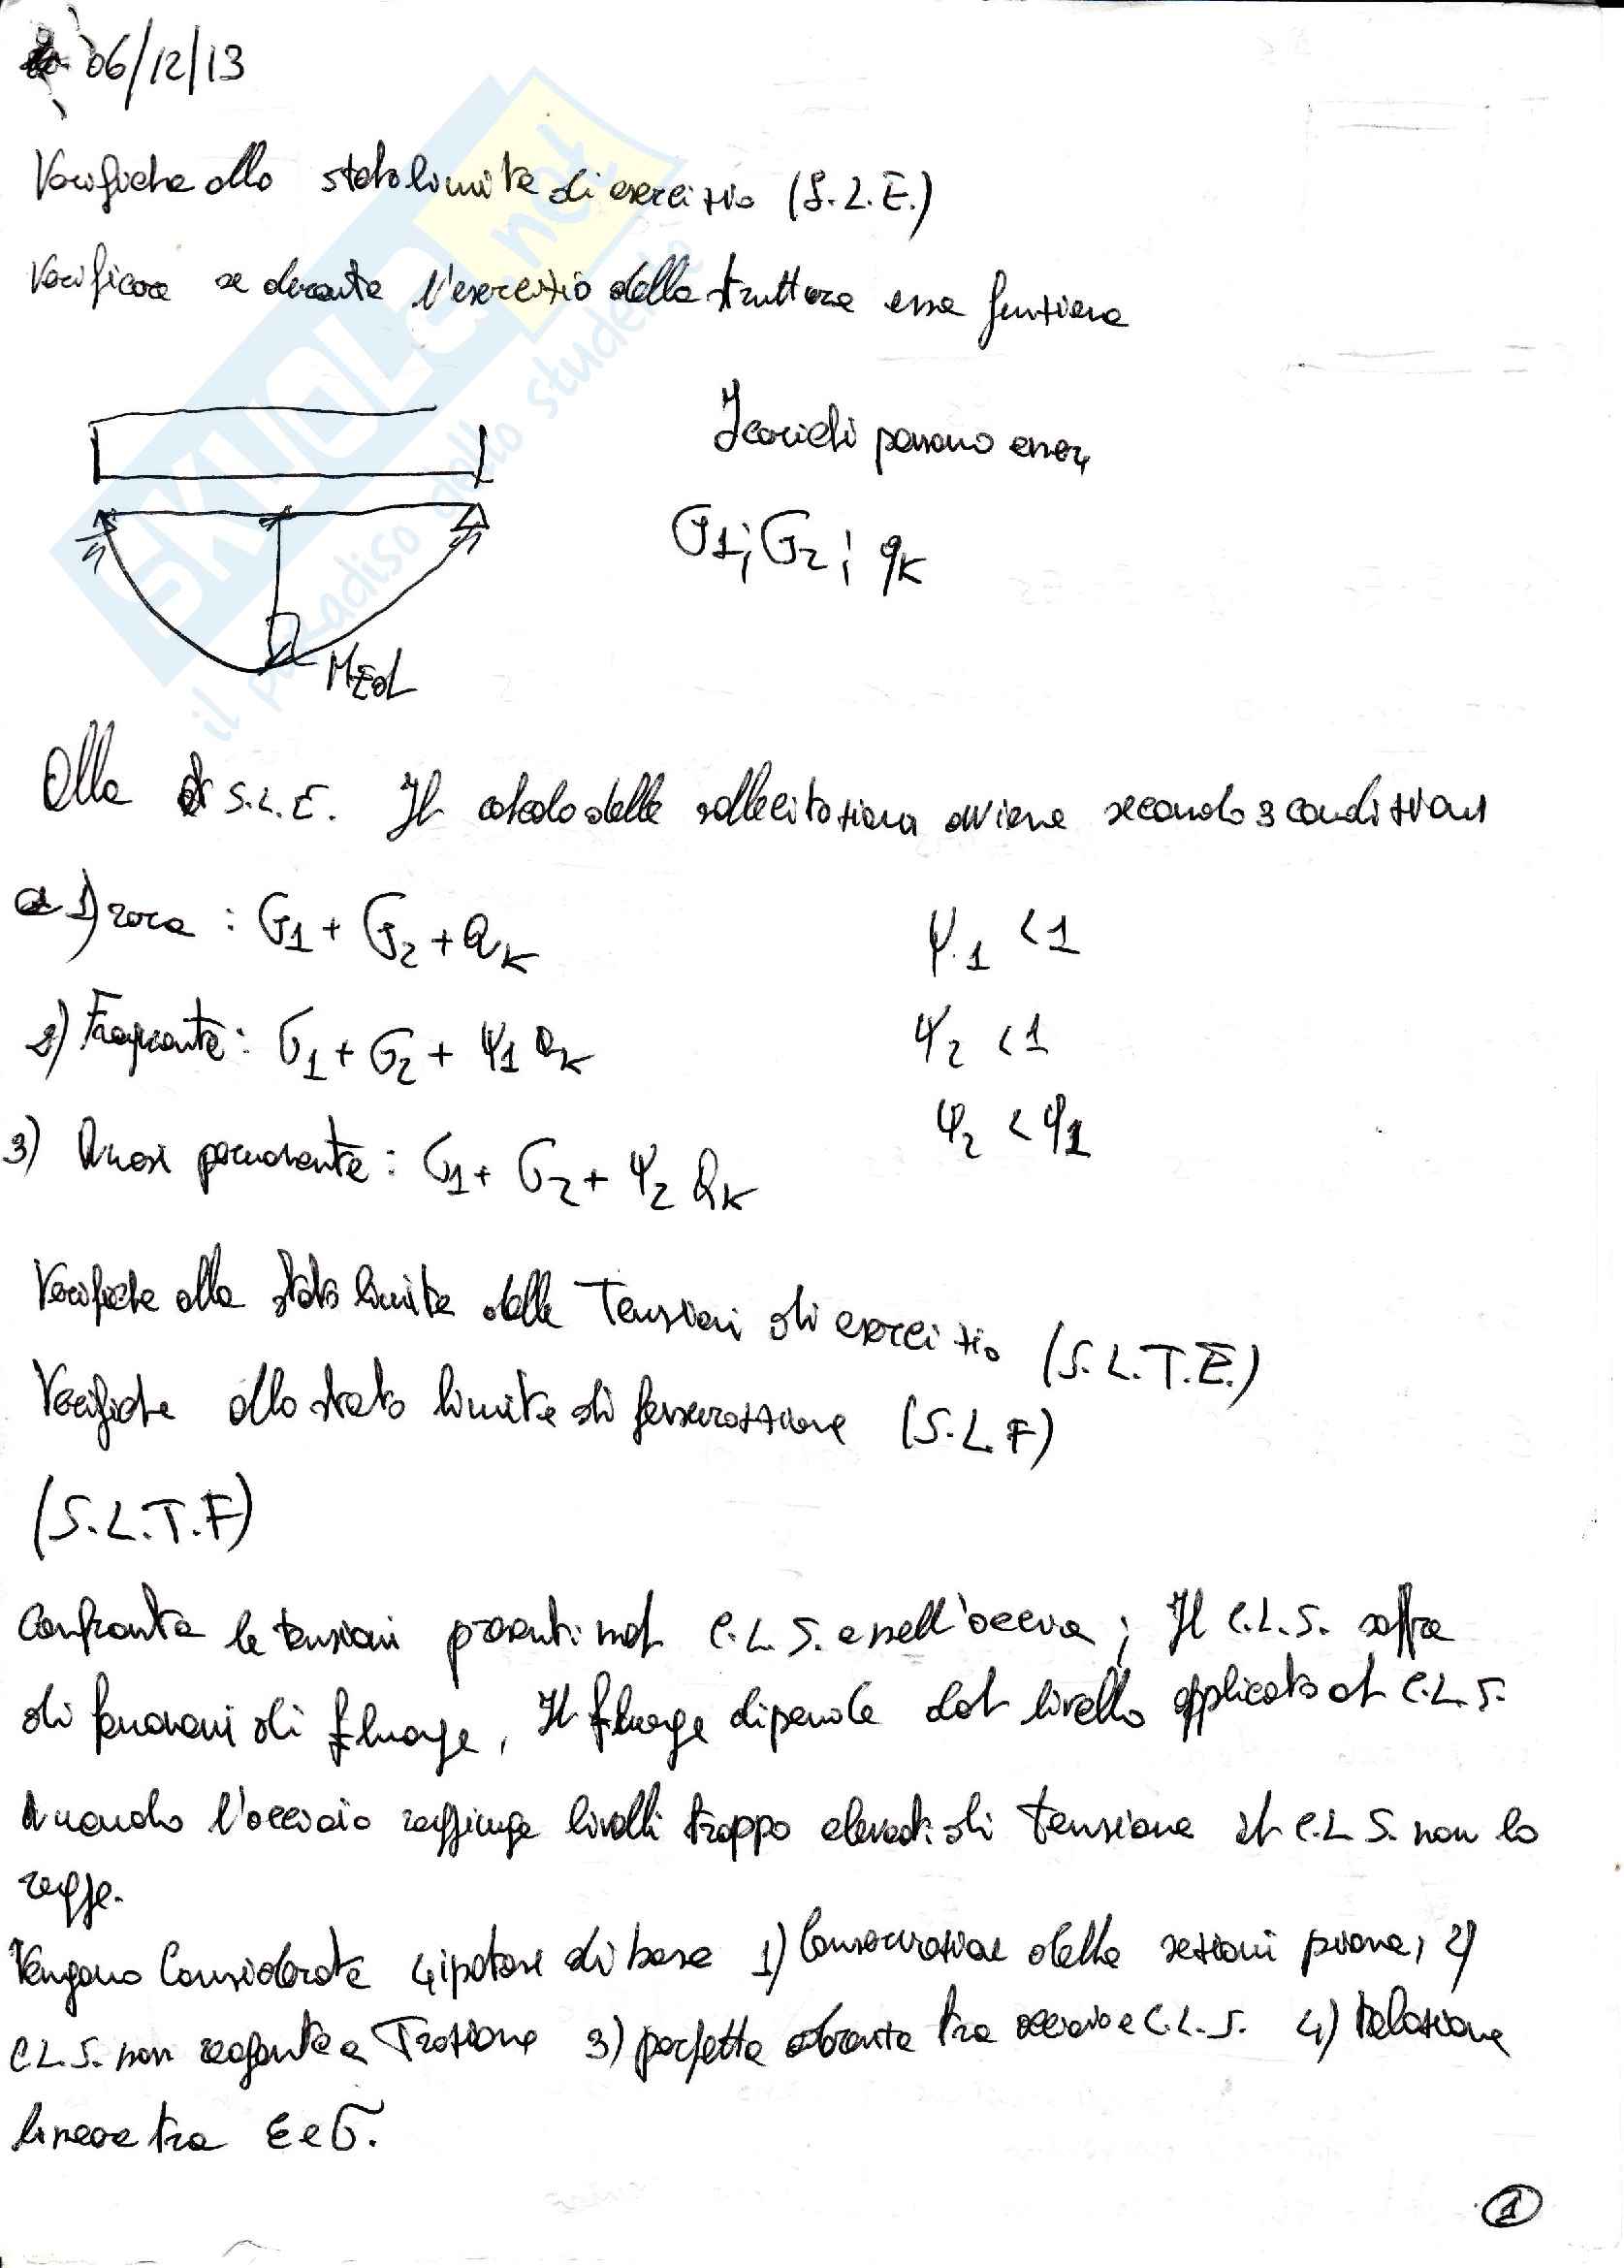 06/12/13
Verifiche allo stato limite di esercizio (S.L.E.)
Verificare se durante l'esercizio della struttura essa funziona
I carichi possono esser
G1; G2; qK
MEd
Alla S.L.E. Il calcolo delle sollecitazioni avviene secondo 3 condizioni
1) rara : G1 + G2 + QK
ψ1 < 1
2) Frequente: G1 + G2 + ψ1 QK
ψ2 < 1
3) Quasi permanente: G1 + G2 + ψ2 QK
ψ2 < ψ1
Verifiche allo stato limite delle Tensioni di esercizio (S.L.T.E.)
Verifiche allo stato limite di fessurazione (S.L.F)
(S.L.T.F)
Confronta le tensioni presenti nel C.L.S. e nell'acciaio; Il C.L.S. soffre
di fenomeni di fluage, Il fluage dipende dal livello applicato al C.L.S.
Quando l'acciaio raggiunge livelli troppo elevati di tensione il C.L.S. non lo
regge.
Vengono Considerate 4 ipotesi di base 1) Conservazione delle sezioni piane; 2)
C.L.S. non reagente a Trazione 3) perfetta aderente tra acciaio e C.L.S. 4) Relazione
lineare tra ε e σ.
1
SKUOLA.net
il paradiso dello studente